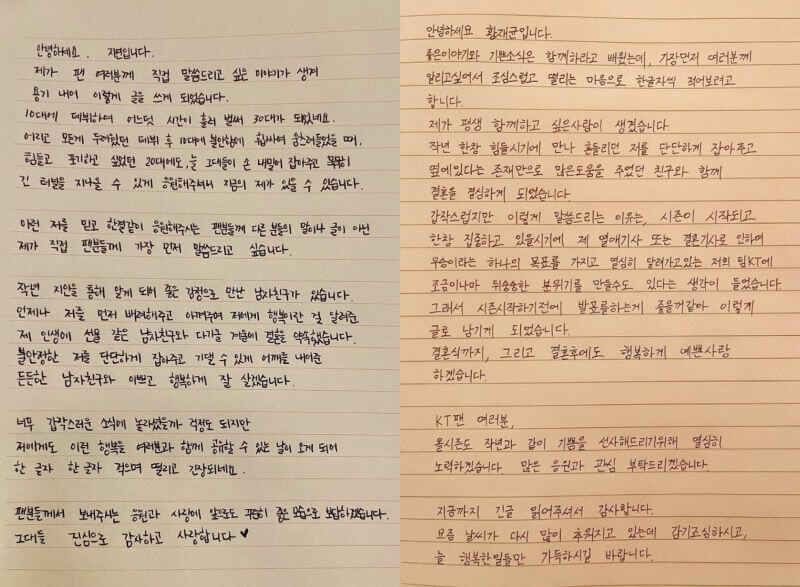 안녕하세요. 지연입니다.
제가 팬 여러분께 직접 말씀드리고 싶은 이야기가 생겨
용기 내어 이렇게 글을 쓰게 되었습니다.
10대에 데뷔하여 어느덧 시간이 흘러 벌써 30대가 됐네요.
어리고 모든게 두려웠던 데뷔 후 10대에 불안함에 휩싸여 움츠러들었을 때,
힘들고 포기하고 싶었던 20대에도, 늘 그대들이 손 내밀어 잡아주고 묵묵히
긴 터널을 지나올 수 있게 응원해주셔서 지금의 제가 있을 수 있습니다.
이런 저를 믿고 한결같이 응원해주시는 팬분들께 다른 분들의 말이나 글이 아닌
제가 직접 팬분들께 가장 먼저 말씀드리고 싶습니다.
작년 지인을 통해 알게 되어 좋은 감정으로 만난 남자친구가 있습니다.
언제나 저를 먼저 배려해주고 아껴주며 저에게 행복이란 걸 알려준
제 인생에 선물 같은 남자친구와 다가올 겨울에 결혼을 약속했습니다.
불안정한 저를 단단하게 잡아주고 기댈 수 있게 어깨를 내어준
든든한 남자친구와 이쁘고 행복하게 잘 살겠습니다.
너무 갑작스러운 소식에 놀라셨을까 걱정도 되지만
저에게도 이런 행복을 여러분과 함께 공유할 수 있는 날이 오게 되어
한 글자 한 글자 적으며 떨리고 긴장되네요.
팬분들께서 보내주시는 응원과 사랑에 앞으로도 꾸준히 좋은 모습으로 보답하겠습니다.
그대들 진심으로 감사하고 사랑합니다 ♥
안녕하세요 황재균입니다.
좋은이야기와 기쁜소식은 함께하라고 배웠는데, 가장먼저 여러분께
알리고싶어서 조심스럽고 떨리는 마음으로 한글자씩 적어보려고
합니다.
제가 평생 함께하고 싶은사람이 생겼습니다.
작년 한창 힘들시기에 만나 흔들리던 저를 단단하게 잡아주고
옆에있다는 존재만으로 많은도움을 주었던 친구와 함께
결혼을 결심하게 되었습니다.
갑작스럽지만 이렇게 말씀드리는 이유는, 시즌이 시작되고
한창 집중하고 있을시기에 제 열애기사 또는 결혼기사로 인하여
우승이라는 하나의 목표를 가지고 열심히 달려가고있는 저희 팀KT에
조금이나마 뒤숭숭한 분위기를 만들수도 있다는 생각이 들었습니다.
그래서 시즌시작하기전에 발표를하는게 좋을꺼같아 이렇게
글로 남기게 되었습니다.
결혼식까지, 그리고 결혼후에도 행복하게 예쁜사랑
하겠습니다.
KT팬 여러분,
올시즌도 작년과 같이 기쁨을 선사해드리기위해 열심히
노력하겠습니다. 많은 응원과 관심 부탁드리겠습니다.
지금까지 긴글 읽어주셔서 감사합니다.
요즘 날씨가 다시 많이 추워지고 있는데 감기조심하시고,
늘 행복한일들만 가득하시길 바랍니다.